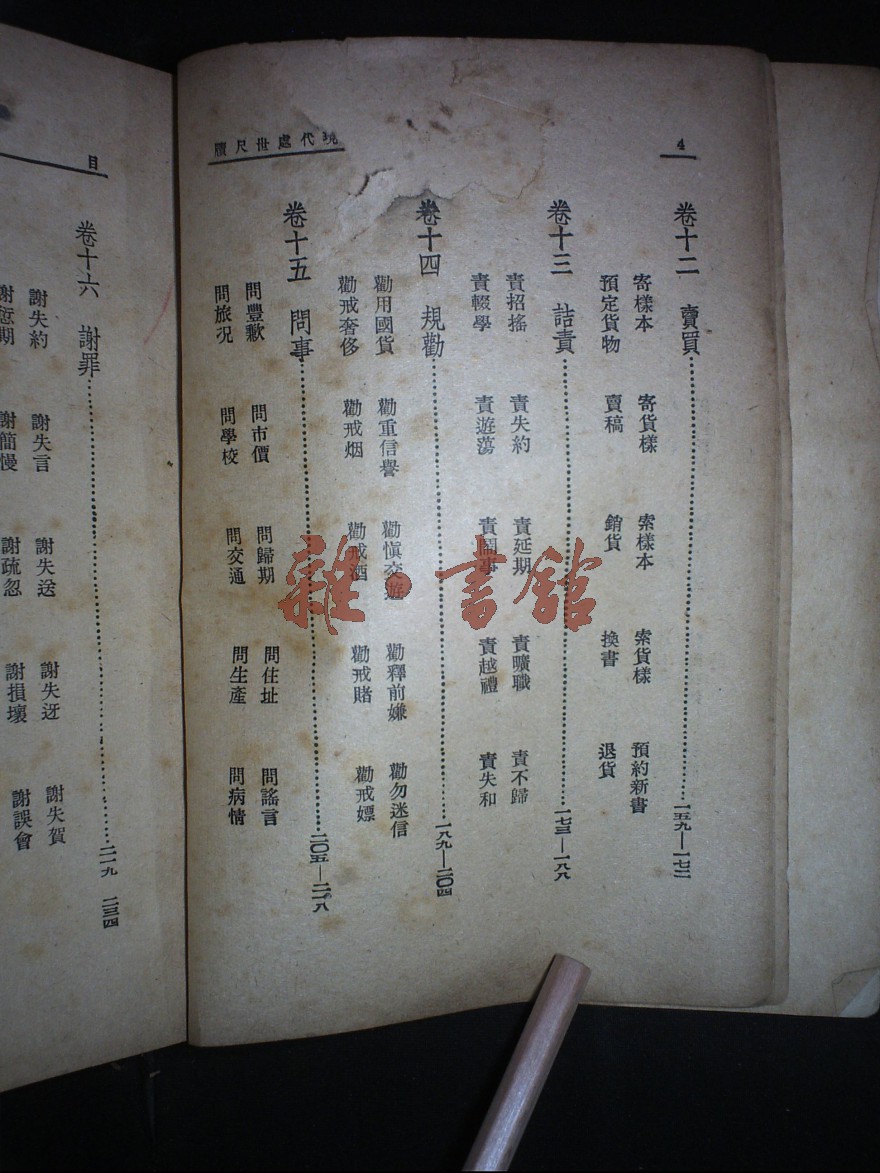 4
現代處世尺牘
卷十二 賣買 一五九—一七二
寄樣本 寄貨樣 索樣本 索貨樣 預約新書
預定貨物 賣稿 銷貨 換書 退貨
卷十三 詰責 一七三—一八八
責招搖 責失約 責延期 責曠職 責不歸
責輟學 責遊蕩 責鬧事 責越禮 責失和
卷十四 規勸 一八九—二〇四
勸用國貨 勸重信譽 勸慎交遊 勸釋前嫌 勸勿迷信
勸戒奢侈 勸戒烟 勸戒酒 勸戒賭 勸戒嫖
卷十五 問事 二〇五—二一八
問豐歉 問市價 問歸期 問住址 問謠言
問旅況 問學校 問交通 問生產 問病情
目
卷十六 謝罪 二一九 二三四
謝失約 謝失言 謝失送 謝失迓 謝失賀
謝愆期 謝簡慢 謝疏忽 謝損壞 謝誤會
雜·書館